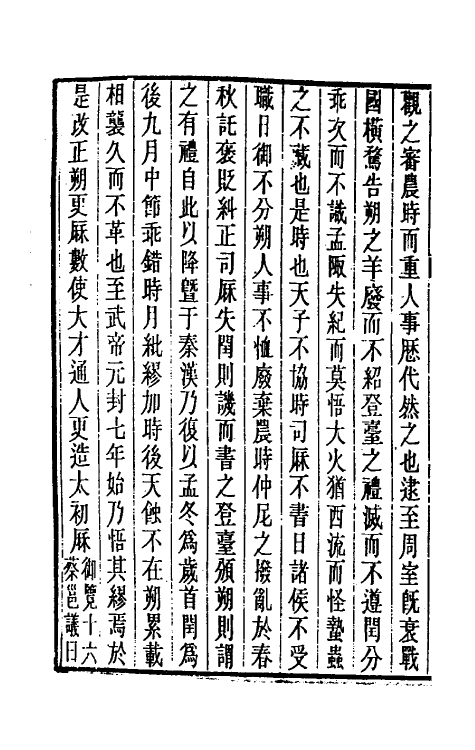 觀之審農時而重人事厯代然之也逮至周室旣衰戰
國橫騖告朔之羊廢而不紹登臺之禮滅而不遵閏分
乖次而不識孟陬失紀而莫悟大火猶西流而怪蟄蟲
之不藏也是時也天子不協時司厤不書日諸侯不受
職日御不分朔人事不恤廢棄農時仲尼之撥亂於春
秋託褒貶糾正司厤失閏則譏而書之登臺頒朔則謂
之有禮自此以降曁于秦漢乃復以孟冬爲歲首閏爲
後九月中節乖錯時月紕繆加時後天蝕不在朔累載
相襲久而不革也至武帝元封七年始乃悟其繆焉於
是改正朔更厤數使大才通人更造太初厤御覽十六
蔡邕議曰